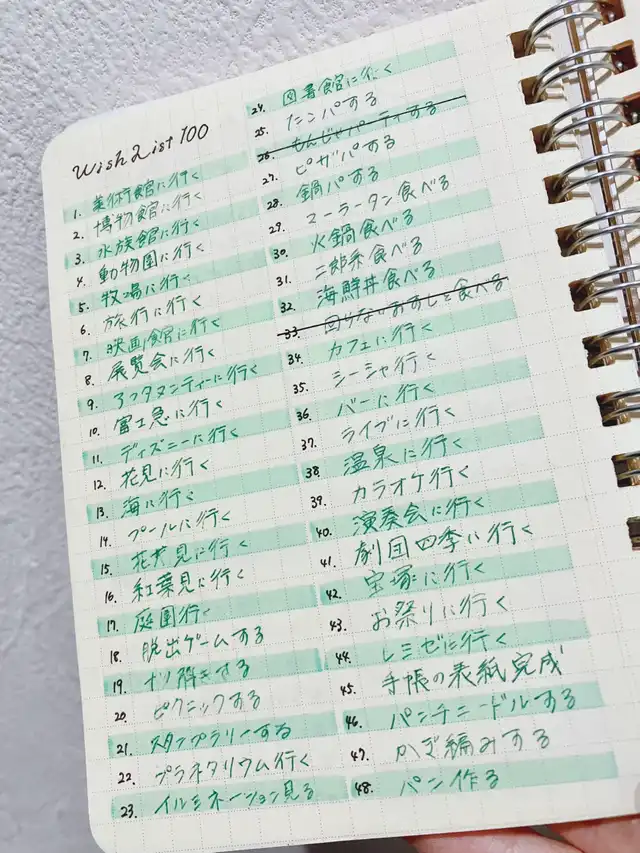 Wish List 100
1. 美術館に行く
2. 博物館に行く
3. 水族館に行く
4. 動物園に行く
5. 牧場に行く
6. 旅行に行く
7. 映画館に行く
8. 展覧会に行く
9. アフタヌンティーに行く
10. 富士急に行く
11. ディズニーに行く
12. 花見に行く
13. 海に行く
14. プールに行く
15. 花火見に行く
16. 紅葉見に行く
17. 庭園行く
18. 脱出ゲームする
19. ナゾ解きする
20. ピクニックする
21. スタンプラリーする
22. プラネタリウム行く
23. イルミネーション見る
24. 図書館に行く
25. たこパする
26. もんじゃパーティする
27. ピザパする
28. 鍋パする
29. マーラータン食べる
30. 火鍋食べる
31. 二郎系食べる
32. 海鮮丼食べる
33. 回らないおすしを食べる
34. カフェに行く
35. シーシャ行く
36. バーに行く
37. ライブに行く
38. 温泉に行く
39. カラオケ行く
40. 演奏会に行く
41. 劇団四季に行く
42. 宝塚に行く
43. お祭りに行く
44. レミゼに行く
45. 手帳の表紙完成
46. パンチニードルする
47. かぎ編みする
48. パン作る